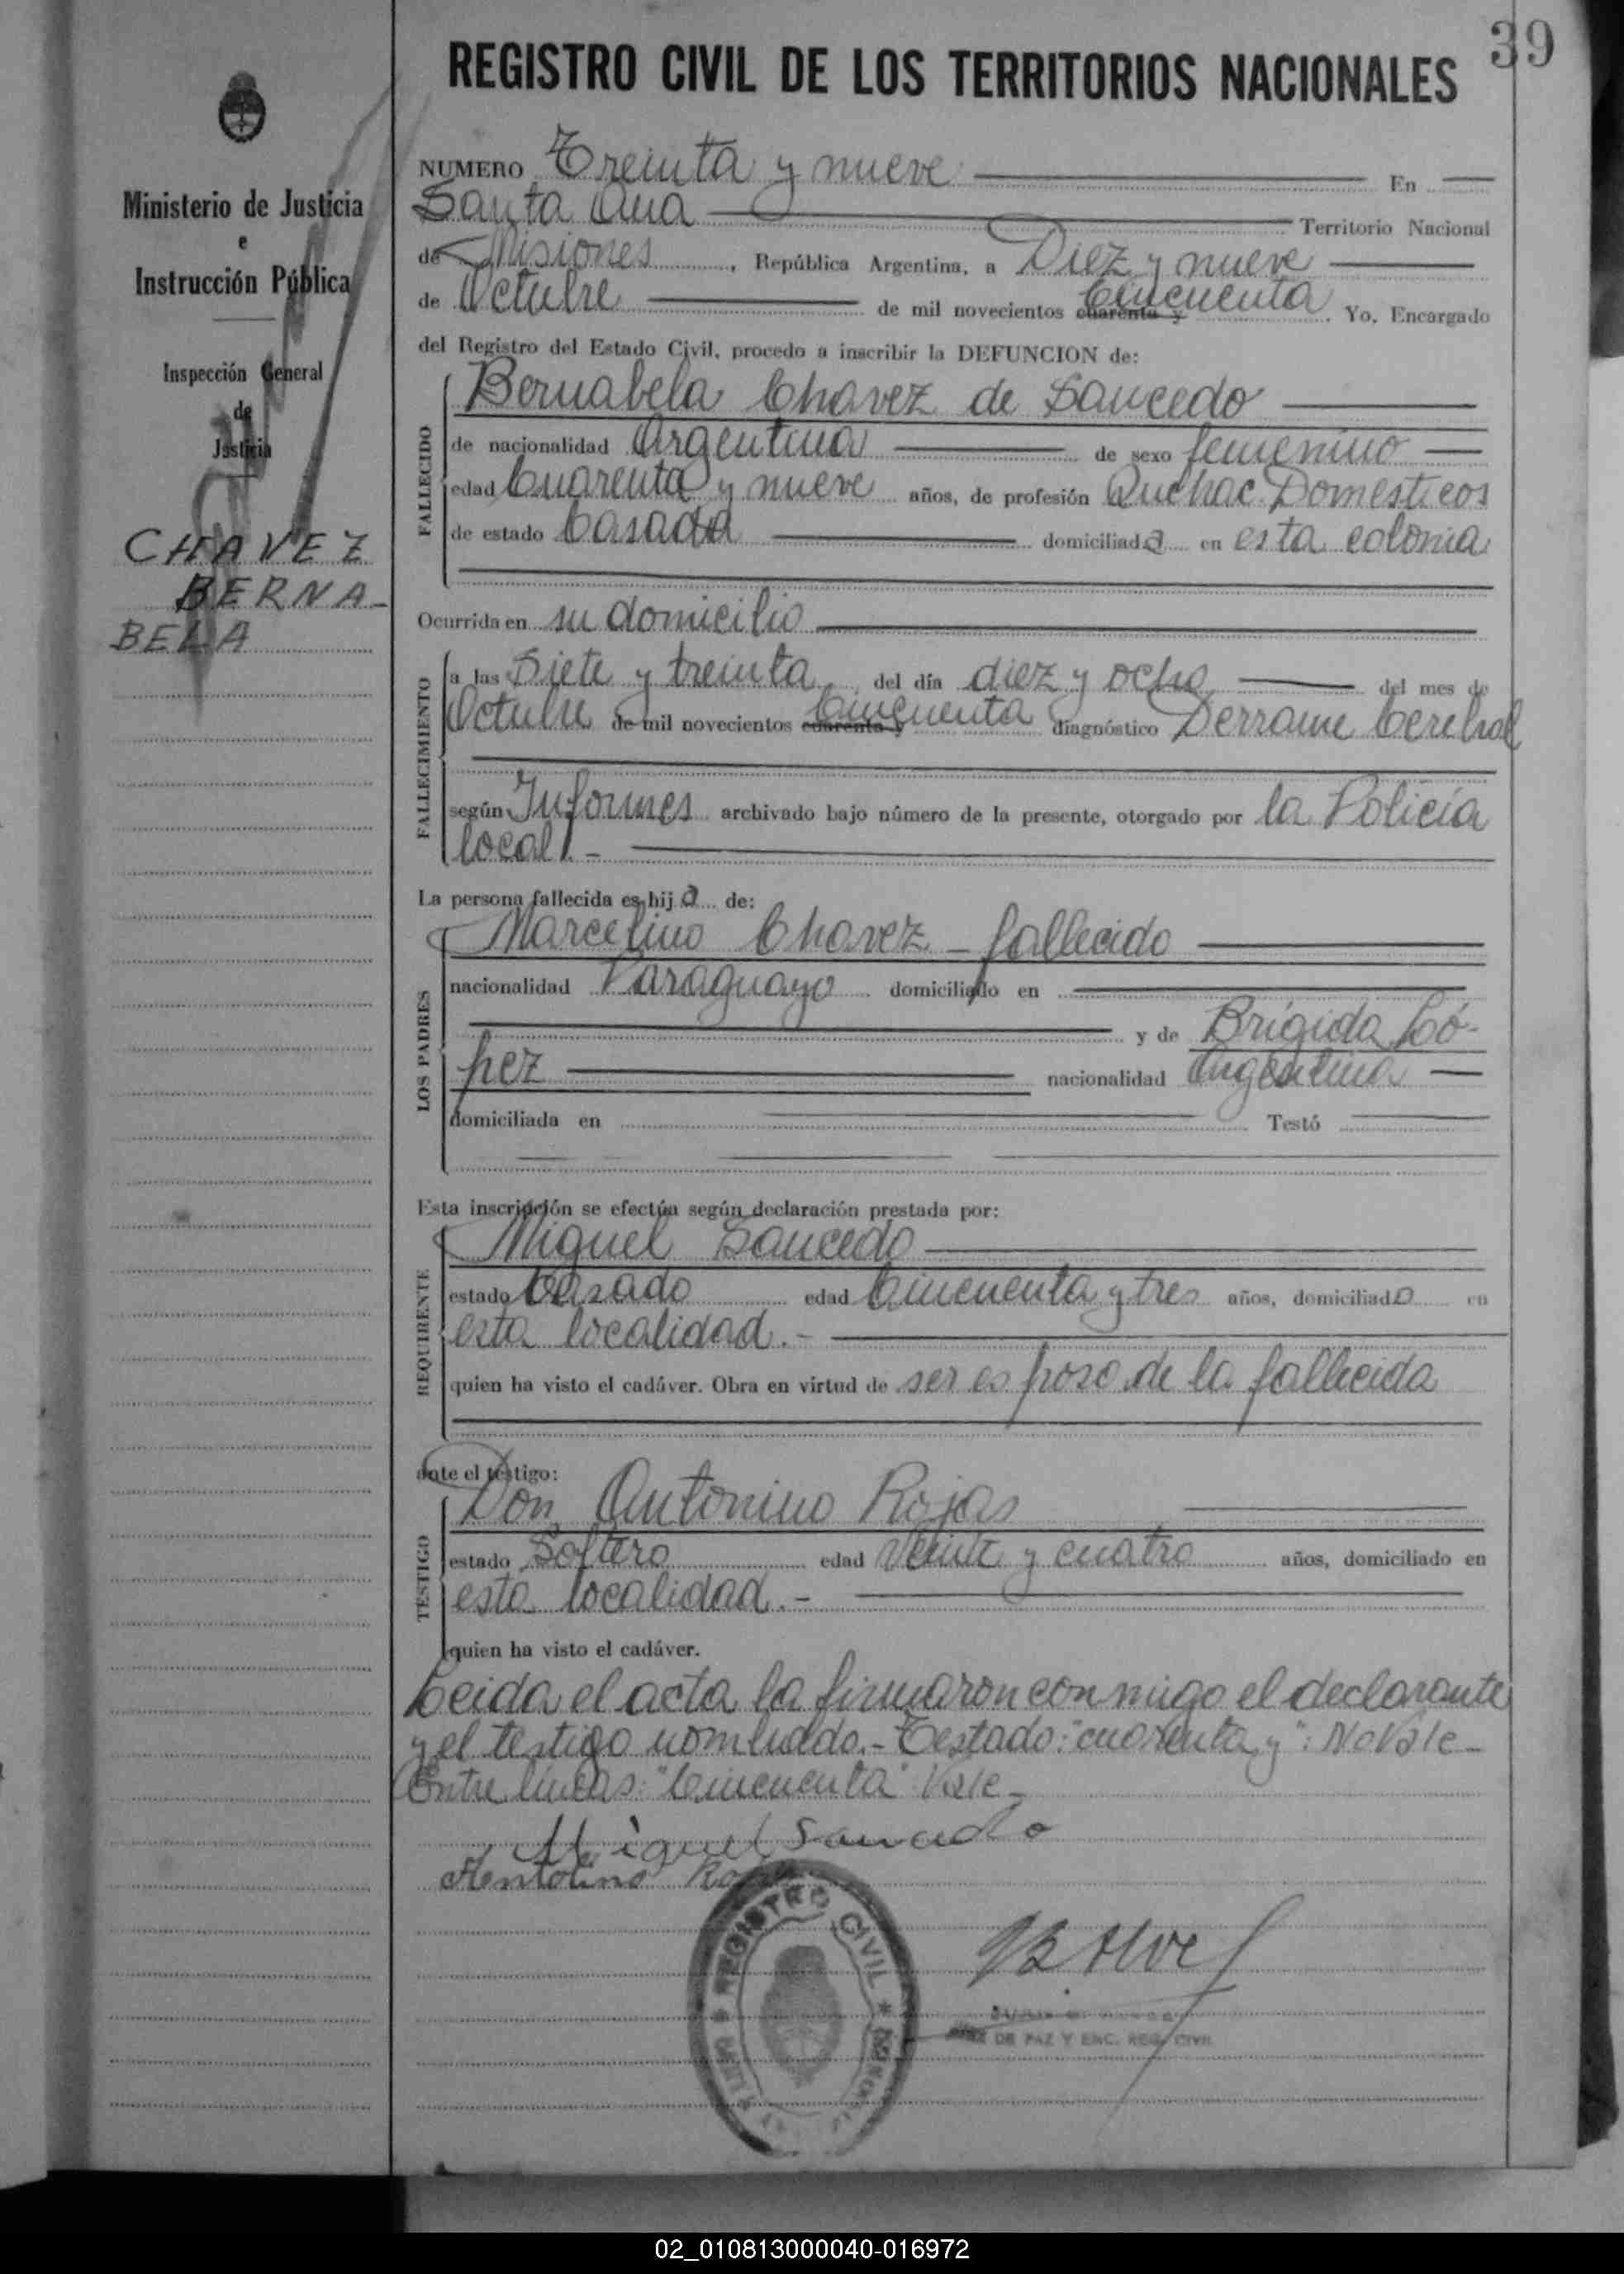 39
REGISTRO CIVIL DE LOS TERRITORIOS NACIONALES
Ministerio de Justicia
e
Instrucción Pública
Inspección General
de
Justicia
CHAVEZ
BERNA-
BELA
NUMERO Treinta y nueve En
Santa Ana Territorio Nacional
de Misiones, República Argentina, a Diez y nueve
de Octubre de mil novecientos cuarenta y Cincuenta. Yo, Encargado
del Registro del Estado Civil, procedo a inscribir la DEFUNCION de:
FALLECIDO
Bernabela Chavez de Saucedo
de nacionalidad Argentina de sexo femenino
edad Cuarenta y nueve años, de profesión Quehac. Domesticos
de estado Casada domiciliada en esta colonia
Ocurrida en su domicilio
FALLECIMIENTO
a las Siete y treinta del día diez y ocho del mes de
Octubre de mil novecientos cuarenta y Cincuenta diagnóstico Derrame Cerebral
según Informes archivado bajo número de la presente, otorgado por la Policía
local.-
La persona fallecida es hija de:
LOS PADRES
Marcelino Chavez - fallecido
nacionalidad Paraguayo domiciliado en
y de Brígida Ló-
pez nacionalidad Argentina
domiciliada en Testó
Esta inscripción se efectúa según declaración prestada por:
REQUIRENTE
Miguel Saucedo
estado Casado edad Cincuenta y tres años, domiciliado en
esta localidad.-
quien ha visto el cadáver. Obra en virtud de ser esposo de la fallecida
ante el testigo:
TESTIGO
Don Antonino Rojas
estado Soltero edad Veinte y cuatro años, domiciliado en
esta localidad.-
quien ha visto el cadáver.
Leida el acta la firmaron conmigo el declarante
y el testigo nombrado.- Testado: "cuarenta y": No Vale-
Entre líneas: "Cincuenta" Vale-
Miguel Saucedo
REGISTRO CIVIL
DE PAZ Y ENC. REG. CIVIL
02_010813000040-016972